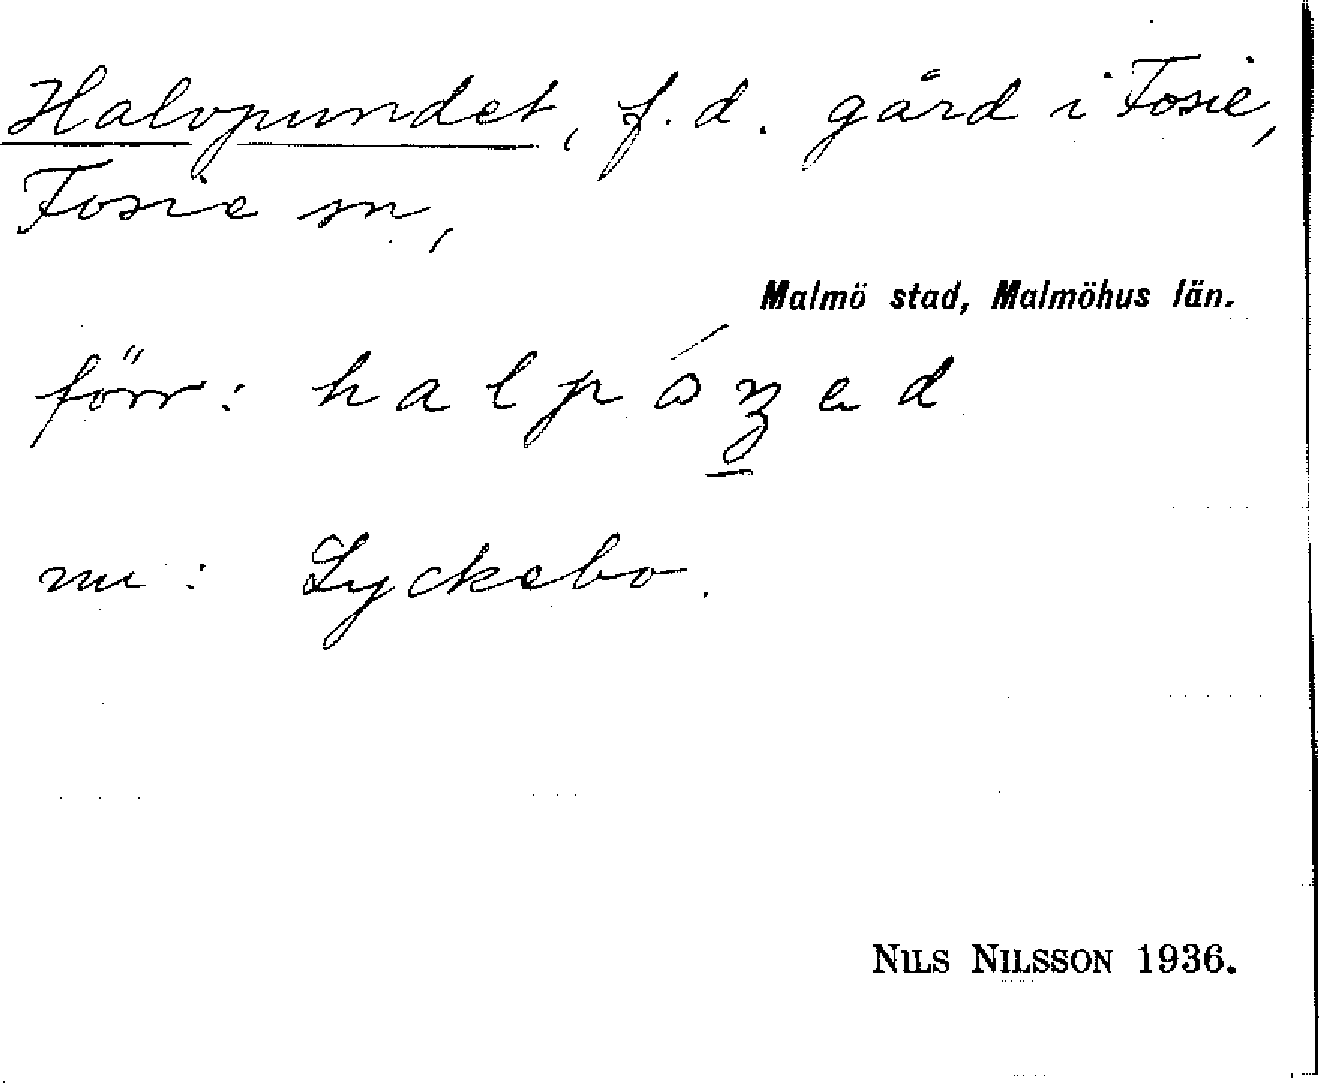 Halvpundet, f.d. gård i Fosie,
Fosie sn,
Malmö stad, Malmöhus län.
förr:
nu: Lyckebo.
NILS NILSSON 1936.